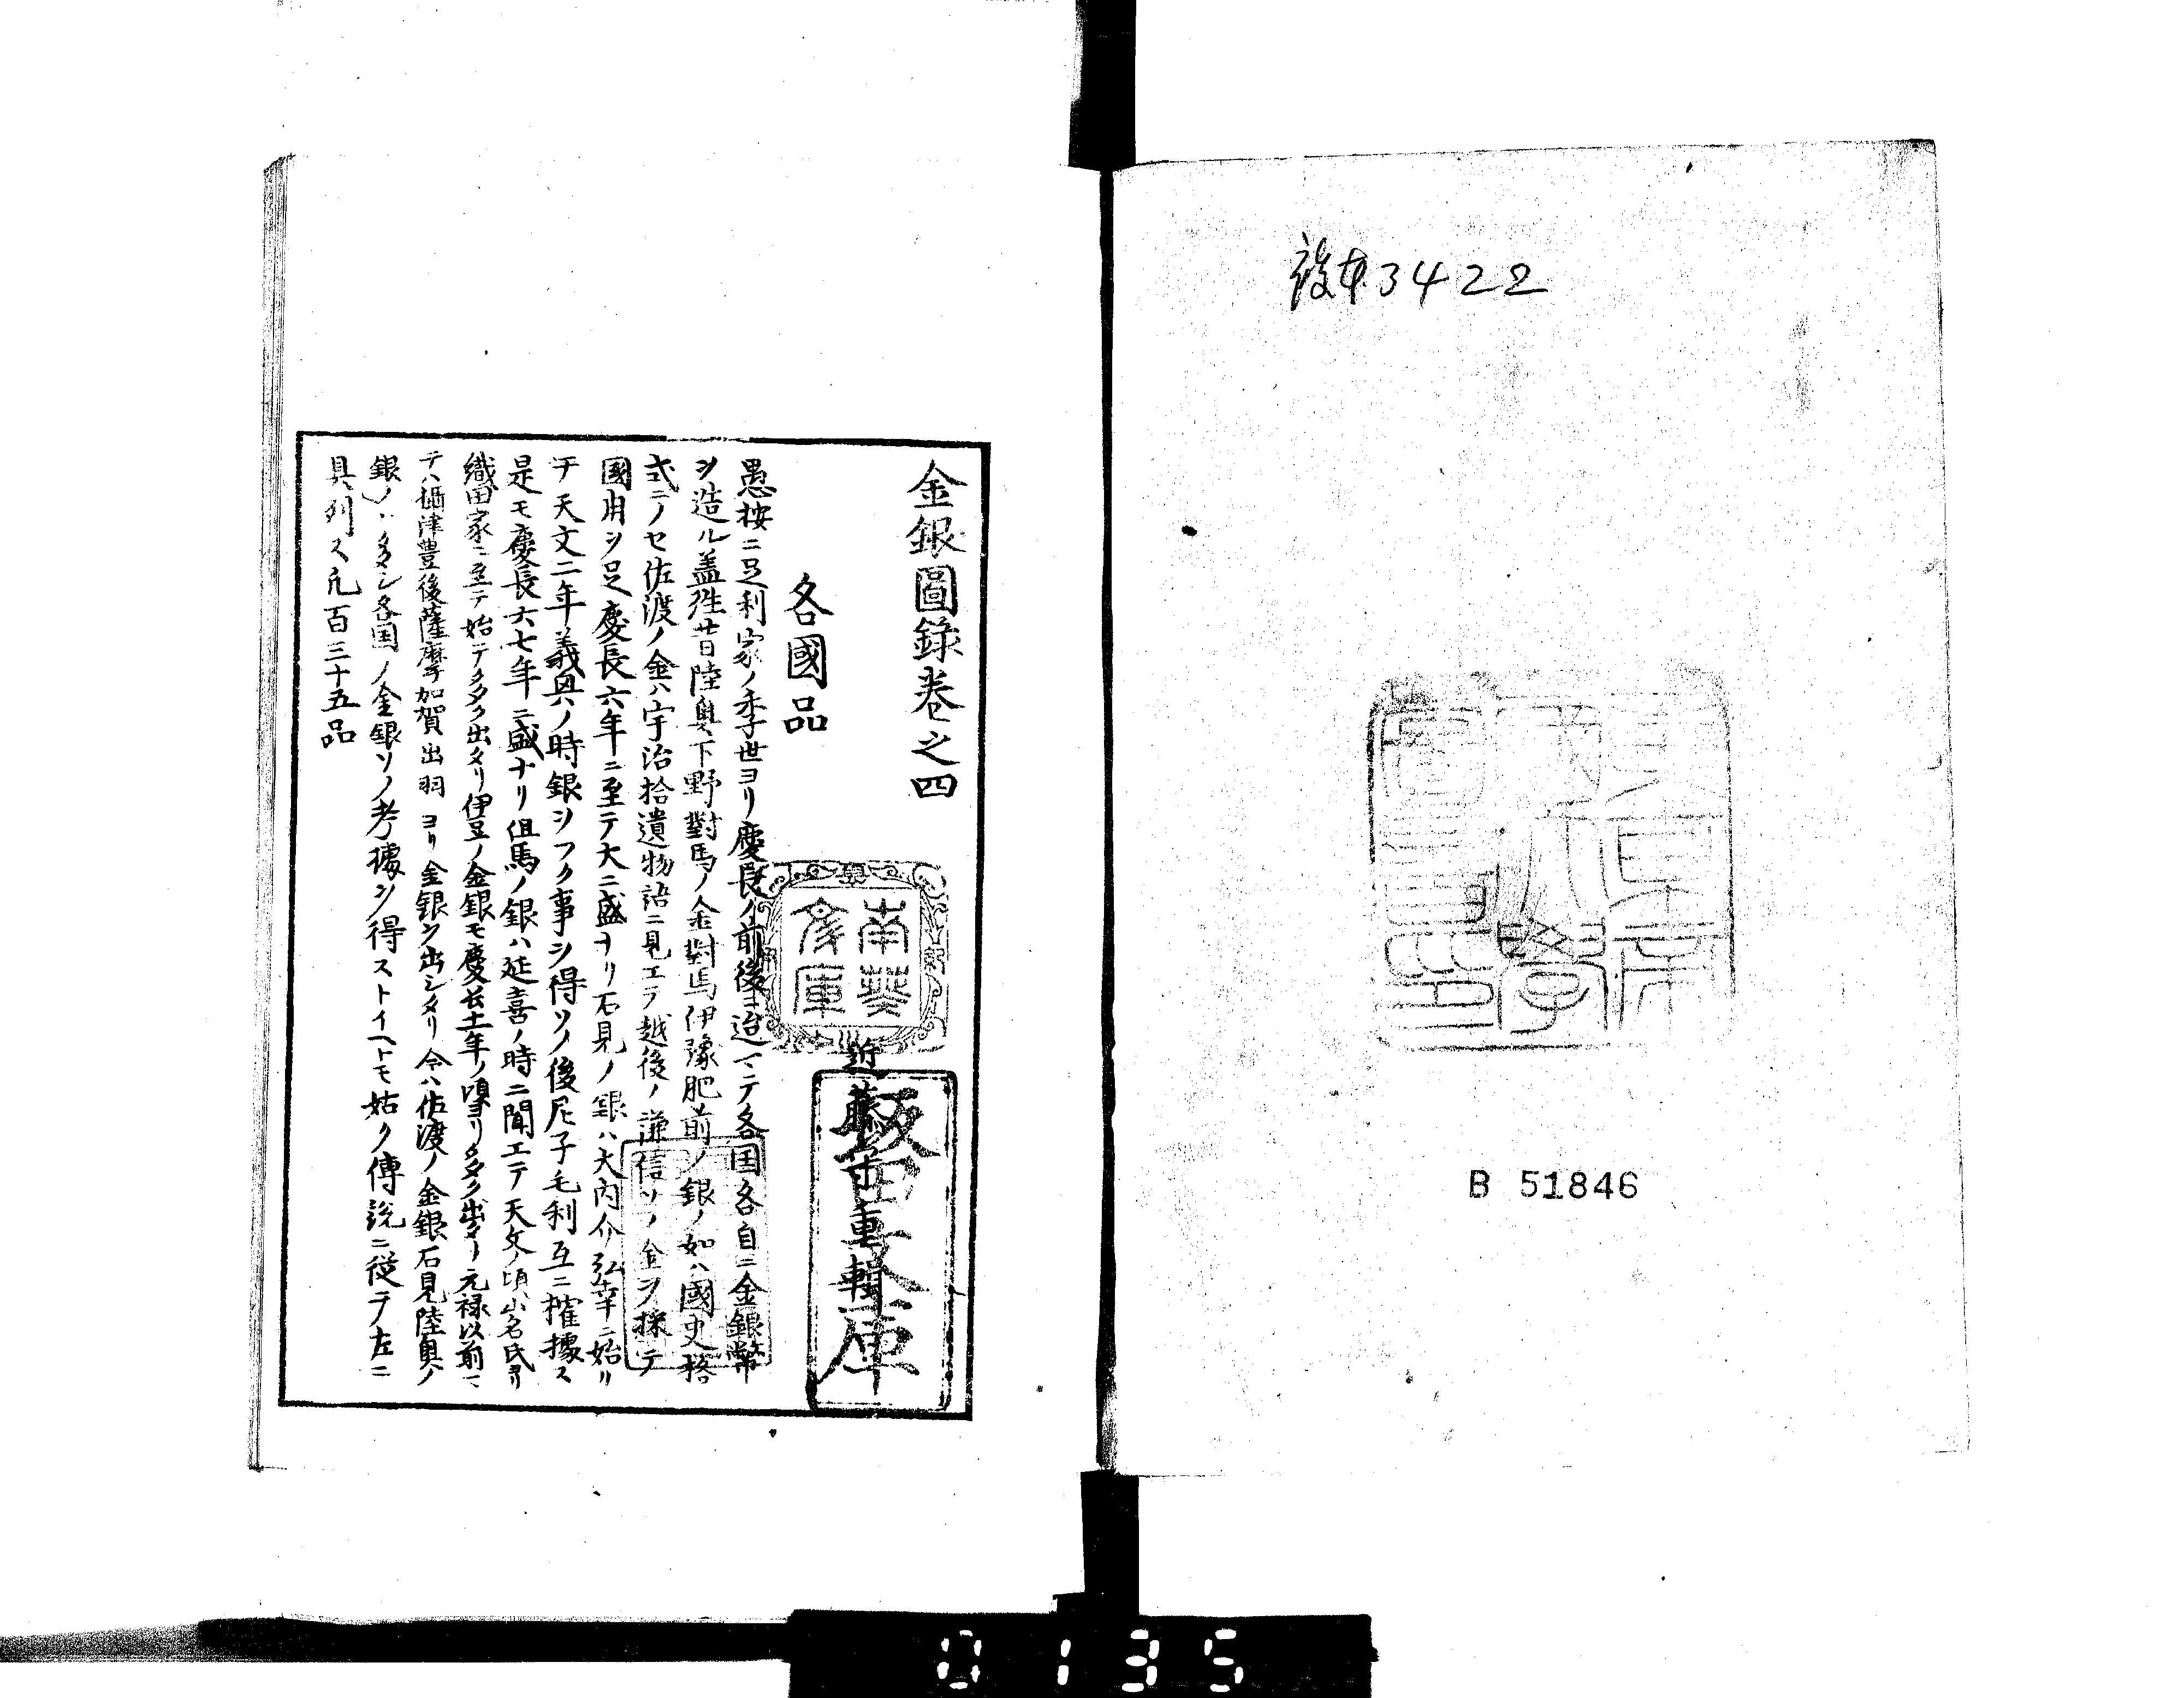 複本3422
東京帝國大學圖書印
B 51846
金銀圖錄卷之四
南葵文庫
近藤守重輯
阪田文庫
各國品
愚按ニ足利家ノ季世ヨリ慶長ノ前後ヨ迨マテ各国各自ニ金銀幣
ヲ造ル盖徃昔陸奥下野對馬ノ金對馬伊豫肥前ノ銀ノ如ハ國史格
式ニノセ佐渡ノ金ハ宇治拾遺物語ニ見エテ越後ノ謙信ソノ金ヲ採テ
國用ヲ足慶長六年ニ至テ大ニ盛ナリ石見ノ銀ハ大内介弘幸ニ始リ
テ天文二年義興ノ時銀ヲフク事ヲ得ソノ後尼子毛利互ニ搉據ス
是モ慶長六七年ニ盛ナリ但馬ノ銀ハ延喜ノ時ニ聞エテ天文ノ頃山名氏ヨリ
織田家ニ至テ始テ多ク出タリ伊豆ノ金銀モ慶長十一年ノ頃ヨリ多ク出タリ元禄以前ニ
テハ攝津豊後薩摩加賀出羽ヨリ金銀ヲ出シタリ今ハ佐渡ノ金銀石見陸奥ノ
銀ノミ多シ各国ノ金銀ソノ考據ヲ得ストイヘトモ姑ク傳説ニ從テ左ニ
具列ス凢百三十五品
0135